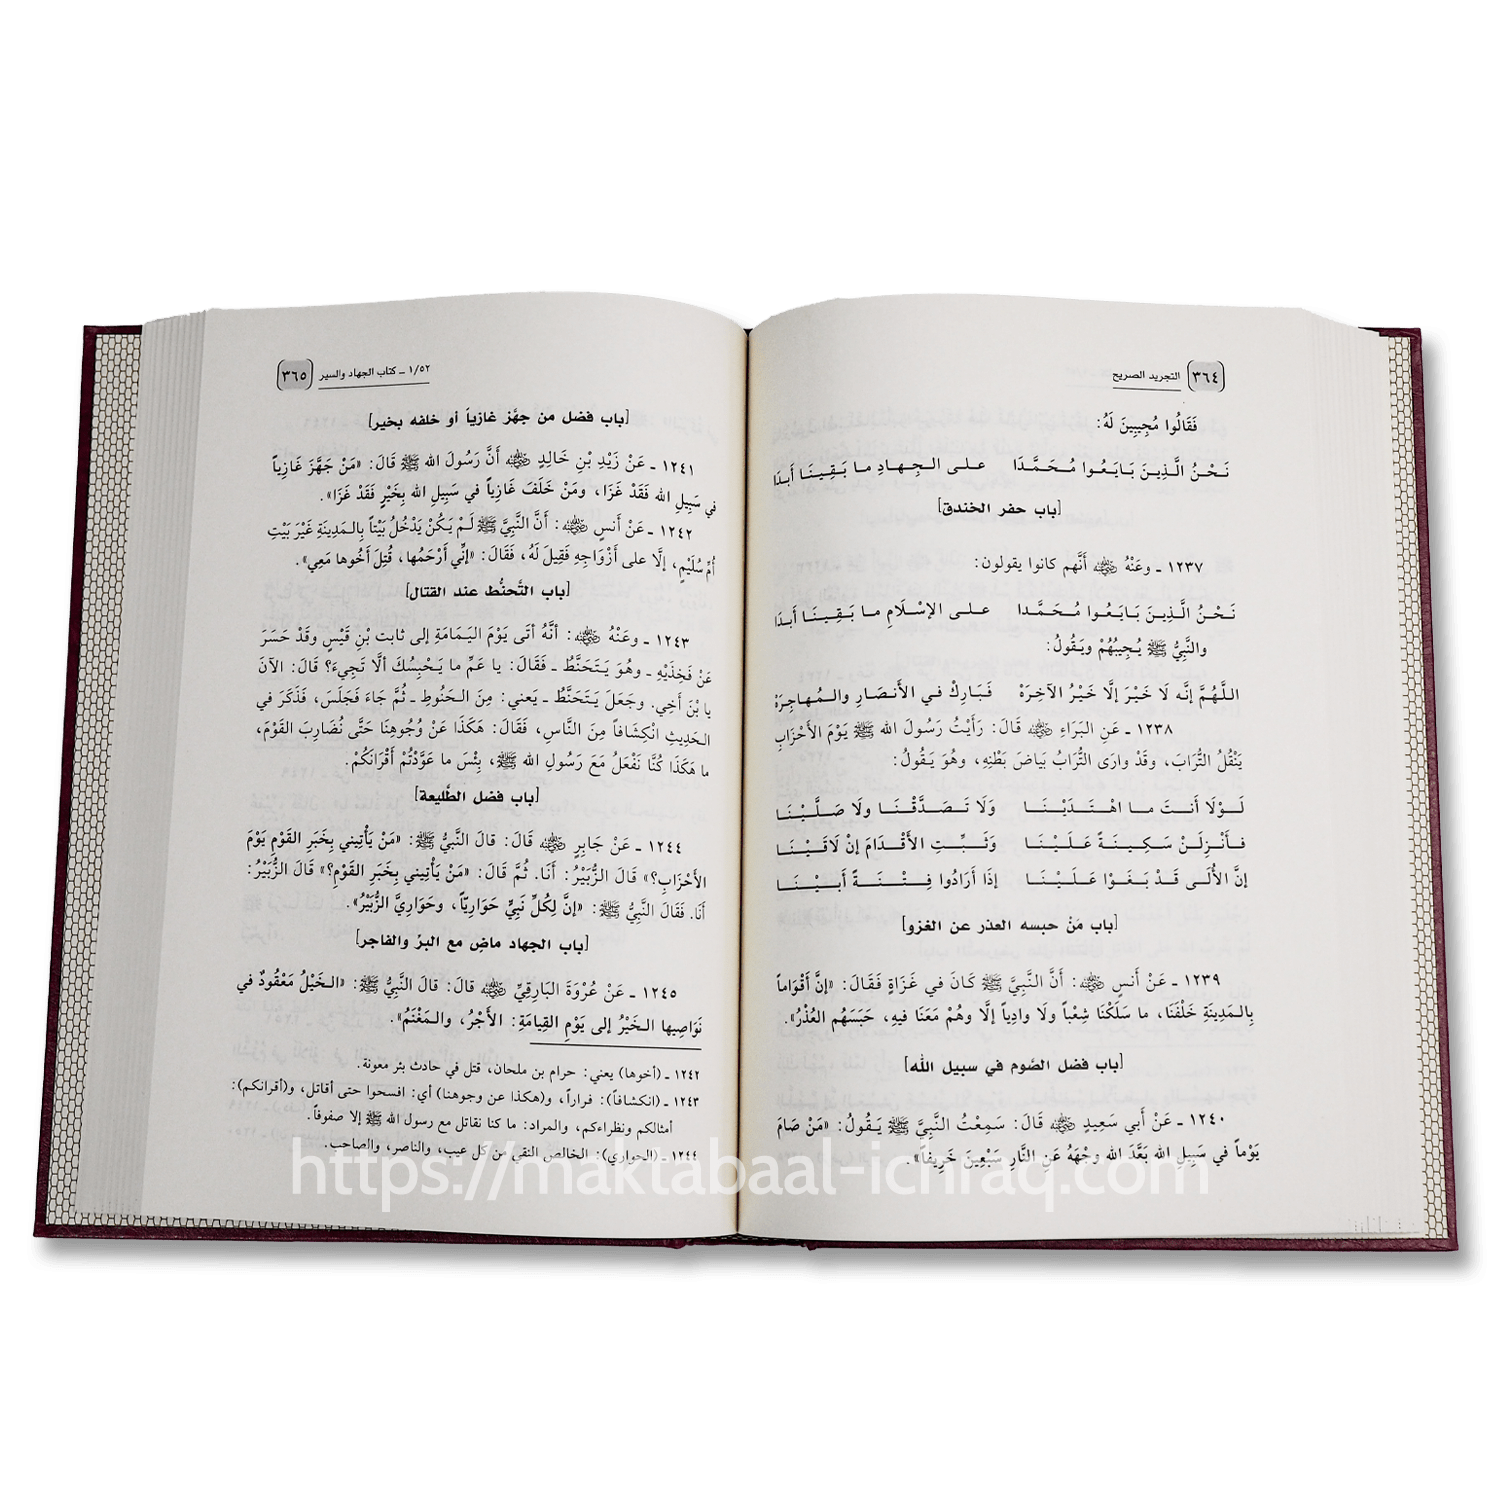 ٣٦٤ التجريد الصريح
فَقَالُوا مُجِيبِينَ لَهُ:
نَحْنُ الَّذِينَ بَايَعُوا مُحَمَّدَا على الجِهادِ ما بَقِينَا أبَدَا
[باب حفر الخندق]
١٢٣٧ ـ وعَنْهُ رضي الله عنه أنَّهم كانوا يقولون:
نَحْنُ الَّذِينَ بَايَعُوا مُحَمَّدا على الإسْلَامِ ما بَقِينَا أبَدَا
والنَّبِيُّ ﷺ يُجِيبُهُمْ ويَقُولُ:
اللَّهُمَّ إنَّه لَا خَيْرَ إلَّا خَيْرُ الآخِرَهْ فَبَارِكْ في الأَنصَارِ والمُهاجِرَهْ
١٢٣٨ ـ عَنِ البَراءِ رضي الله عنه قَالَ: رَأيْتُ رَسُولَ الله ﷺ يَوْمَ الأحْزَابِ
يَنْقُلُ التُّرَابَ، وقَدْ وارَى التُّرابُ بَيَاضَ بَطْنِهِ، وهُوَ يَقُولُ:
لَوْلَا أَنتَ ما اهْتَدَيْنَا وَلَا تَصَدَّقْنَا ولا صَلَّيْنَا
فأنْزِلَنْ سَكِينَةً عَلَيْنَا وَثَبِّتِ الأقْدَامَ إنْ لَاقَيْنَا
إنَّ الأُلَى قَدْ بَغَوْا عَلَيْنَا إذَا أرَادُوا فِتْنَةً أبَيْنَا
[باب مَنْ حبسه العذر عن الغزو]
١٢٣٩ ـ عَنْ أنسٍ رضي الله عنه: أنَّ النَّبِيَّ ﷺ كَانَ في غَزَاةٍ فَقَالَ: «إنَّ أقْوَاماً
بِالمَدِينَةِ خَلْفَنَا، ما سَلَكْنَا شِعْباً ولَا وادِياً إلَّا وهُمْ مَعَنَا فيهِ، حَبَسَهُم العُذْرُ».
[باب فضل الصّوم في سبيل الله]
١٢٤٠ ـ عَنْ أبي سَعِيدٍ رضي الله عنه قَالَ: سَمِعْتُ النَّبِيَّ ﷺ يَقُولُ: «مَنْ صَامَ
يَوْماً في سَبِيلِ الله بَعَّدَ الله وجْهَهُ عَنِ النَّارِ سَبْعِينَ خَرِيفاً».
١/٥٢ ـ كتاب الجهاد والسير ٣٦٥
[باب فضل من جهَّز غازياً أو خلفه بخير]
١٢٤١ ـ عَنْ زَيْدِ بْنِ خَالِدٍ رضي الله عنه أنَّ رَسُولَ الله ﷺ قَالَ: «مَنْ جَهَّزَ غَازِياً
في سَبِيلِ الله فَقَدْ غَزَا، ومَنْ خَلَفَ غَازِياً في سَبِيلِ الله بِخَيْرٍ فَقَدْ غَزَا».
١٢٤٢ ـ عَنْ أنسٍ رضي الله عنه: أنَّ النَّبِيَّ ﷺ لَمْ يَكُنْ يَدْخُلُ بَيْتاً بِالمَدِينَةِ غَيْرَ بَيْتِ
أُمِّ سُلَيْمٍ، إلَّا على أَزْوَاجِهِ فَقِيلَ لَهُ، فَقَالَ: «إنِّي أرْحَمُها، قُتِلَ أخُوها مَعِي».
[باب التَّحنُّط عند القتال]
١٢٤٣ ـ وعَنْهُ رضي الله عنه: أنَّهُ أتَى يَوْمَ اليَمَامَةِ إلى ثابت بْنِ قَيْسٍ وقَدْ حَسَرَ
عَنْ فَخِذَيْهِ ـ وهُوَ يَتَحَنَّطُ ـ فَقَالَ: يا عَمِّ ما يَحْبِسُكَ ألَّا تَجِيءَ؟ قَالَ: الآنَ
يا بْنَ أخِي. وجَعَلَ يَتَحَنَّطُ ـ يَعني: مِنَ الحَنُوطِ ـ ثُمَّ جَاءَ فَجَلَسَ، فَذَكَرَ في
الحَدِيثِ انْكِشَافاً مِنَ النَّاسِ، فَقَالَ: هَكَذَا عَنْ وُجُوهِنَا حَتَّى نُضَارِبَ القَوْمَ،
ما هَكَذَا كُنَّا نَفْعَلُ مَعَ رَسُولِ الله ﷺ، بِئْسَ ما عَوَّدْتُمْ أقْرَانَكُمْ.
[باب فضل الطَّليعة]
١٢٤٤ ـ عَنْ جَابِرٍ رضي الله عنه قَالَ: قالَ النَّبِيُّ ﷺ: «مَنْ يَأْتِيني بِخَبَرِ القَوْمِ يَوْمَ
الأحْزَابِ؟» قَالَ الزُّبَيْرُ: أنَا. ثُمَّ قَالَ: «مَنْ يَأْتِيني بِخَبَرِ القَوْمِ؟» قَالَ الزُّبَيْرُ:
أنَا. فَقَالَ النَّبِيُّ ﷺ: «إنَّ لِكُلِّ نَبِيٍّ حَوَارِيّاً، وحَوَارِيَّ الزُّبَيْرُ».
[باب الجهاد ماضٍ مع البرّ والفاجر]
١٢٤٥ ـ عَنْ عُرْوَةَ البَارِقِيِّ رضي الله عنه قالَ: قالَ النَّبِيُّ ﷺ: «الخَيْلُ مَعْقُودٌ في
نَوَاصِيها الخَيْرُ إلى يَوْمِ القِيامَةِ: الأَجْرُ، والمَغْنَمُ».
١٢٤٢ ـ (أخوها) يعني: حرام بن ملحان، قتل في حادث بئر معونة.
١٢٤٣ ـ (انكشافاً): فراراً، و(هكذا عن وجوهنا) أي: افسحوا حتى أقاتل، و(أقرانكم):
أمثالكم ونظراءكم، والمراد: ما كنا نقاتل مع رسول الله ﷺ إلا صفوفاً.
١٢٤٤ ـ (الحواري): الخالص النقي من كل عيب، والناصر، والصاحب.
https://maktabaal-ichraq.com